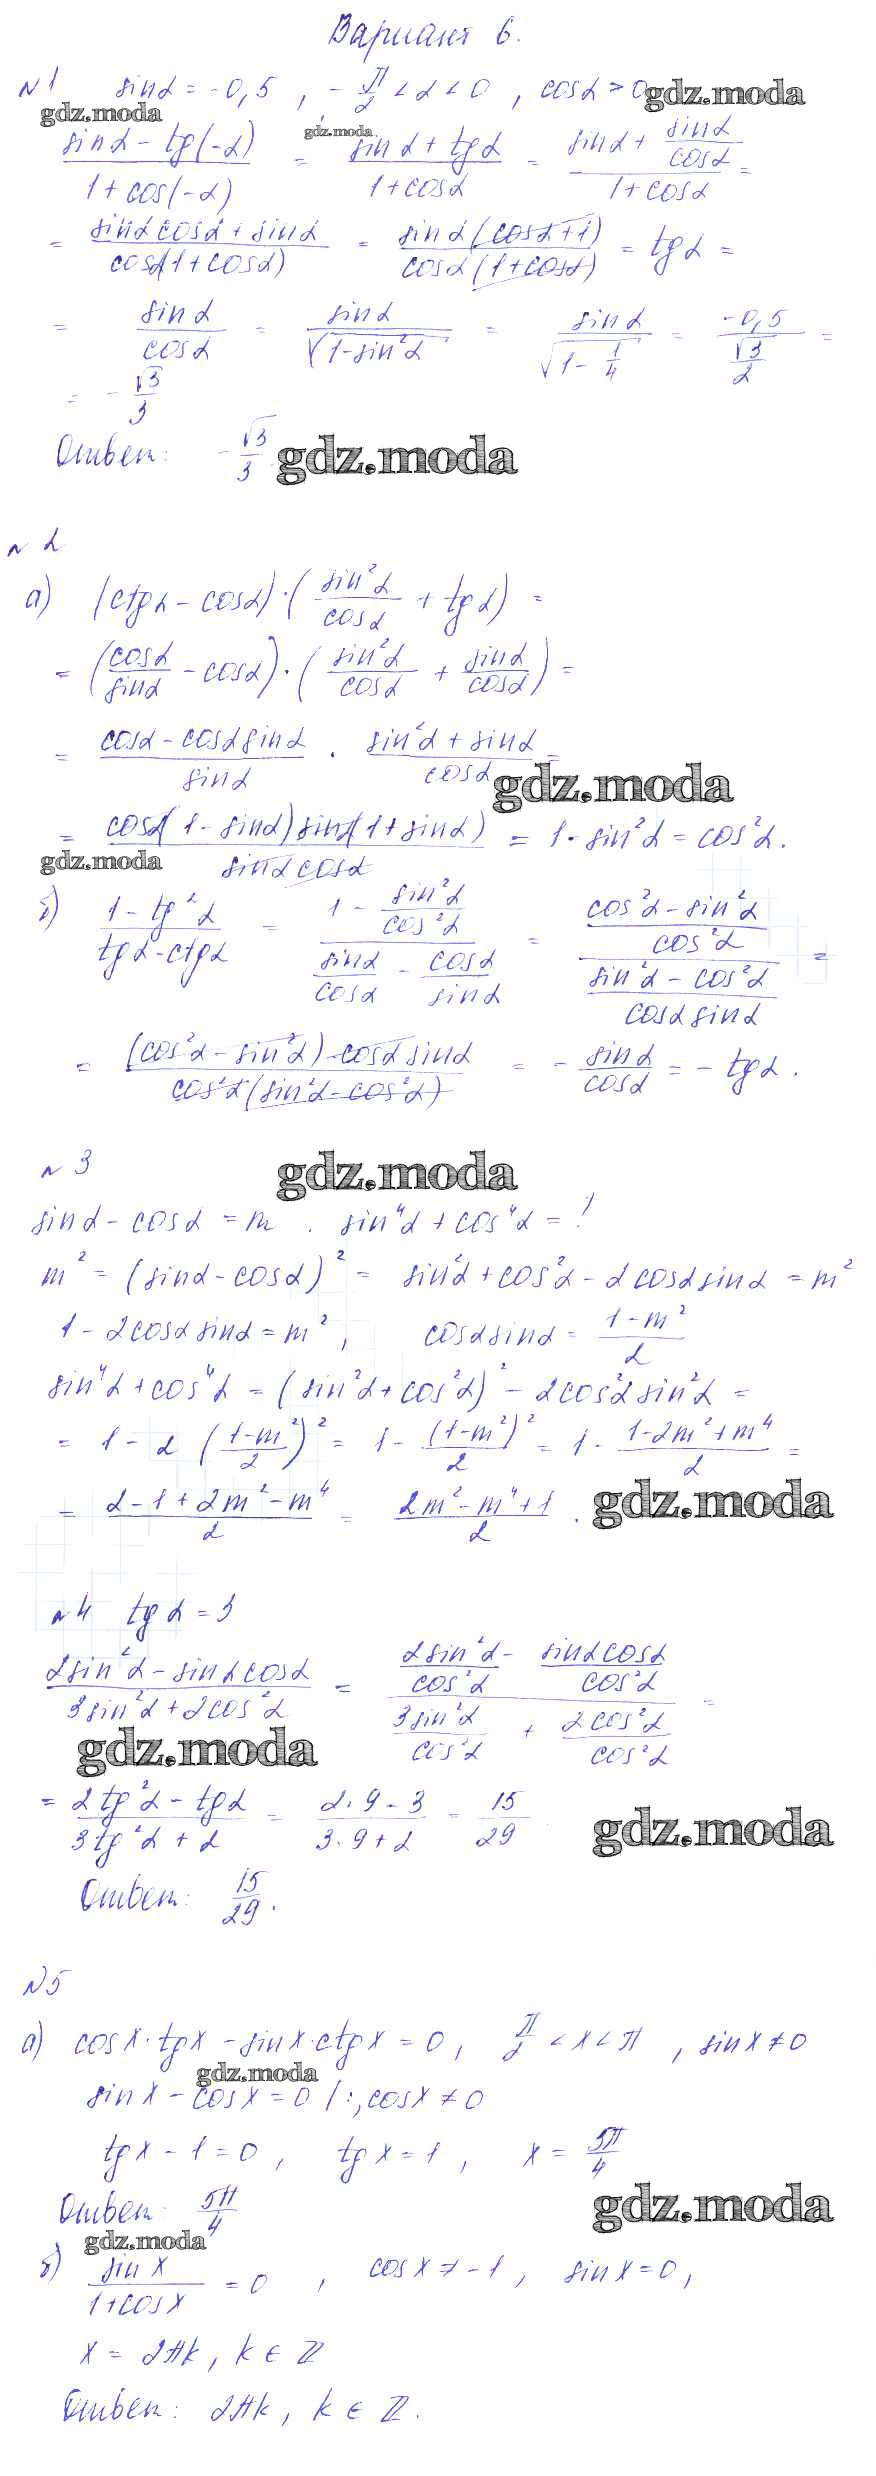 Вариант 6.
№1 sinα = -0,5 , -π/2 < α < 0 , cosα > 0 gdz.moda
gdz.moda gdz.moda
(sinα - tg(-α))/(1 + cos(-α)) = (sinα + tgα)/(1 + cosα) = (sinα + sinα/cosα)/(1 + cosα) =
= (sinα cosα + sinα)/(cosα(1 + cosα)) = (sinα(cosα + 1))/(cosα(1 + cosα)) = tgα =
= sinα/cosα = sinα/√(1 - sin²α) = sinα/√(1 - 1/4) = -0,5/(√3/2) =
= -√3/3
Ответ: -√3/3 gdz.moda
№2
а) (ctgα - cosα)·(sin²α/cosα + tgα) =
= (cosα/sinα - cosα)·(sin²α/cosα + sinα/cosα) =
= (cosα - cosα sinα)/sinα · (sin²α + sinα)/cosα =
gdz.moda
= (cosα(1 - sinα) sinα(1 + sinα))/(sinα cosα) = 1 - sin²α = cos²α.
gdz.moda
б) (1 - tg²α)/(tgα - ctgα) = (1 - sin²α/cos²α)/(sinα/cosα - cosα/sinα) = ((cos²α - sin²α)/cos²α)/((sin²α - cos²α)/(cosα sinα)) =
= ((cos²α - sin²α)·cosα sinα)/(cos²α(sin²α - cos²α)) = -sinα/cosα = -tgα.
№3 gdz.moda
sinα - cosα = m . sin⁴α + cos⁴α = ?
m² = (sinα - cosα)² = sin²α + cos²α - 2cosα sinα = m²
1 - 2cosα sinα = m² , cosα sinα = (1 - m²)/2
sin⁴α + cos⁴α = (sin²α + cos²α)² - 2cos²α sin²α =
= 1 - 2((1 - m²)/2)² = 1 - (1 - m²)²/2 = 1 - (1 - 2m² + m⁴)/2 =
= (2 - 1 + 2m² - m⁴)/2 = (2m² - m⁴ + 1)/2 . gdz.moda
№4 tgα = 3
(2sin²α - sinα cosα)/(3sin²α + 2cos²α) = (2sin²α/cos²α - sinα cosα/cos²α)/(3sin²α/cos²α + 2cos²α/cos²α) =
gdz.moda
= (2tg²α - tgα)/(3tg²α + 2) = (2·9 - 3)/(3·9 + 2) = 15/29 gdz.moda
Ответ: 15/29.
№5
а) cosx·tgx - sinx·ctgx = 0 , π/2 < x < π , sinx ≠ 0
gdz.moda
sinx - cosx = 0 /:, cosx ≠ 0
tgx - 1 = 0 , tgx = 1 , x = 5π/4
Ответ: 5π/4 gdz.moda
gdz.moda
б) sinx/(1 + cosx) = 0 , cosx ≠ -1 , sinx = 0 ,
x = 2πk , k ∈ ℤ
Ответ: 2πk , k ∈ ℤ.